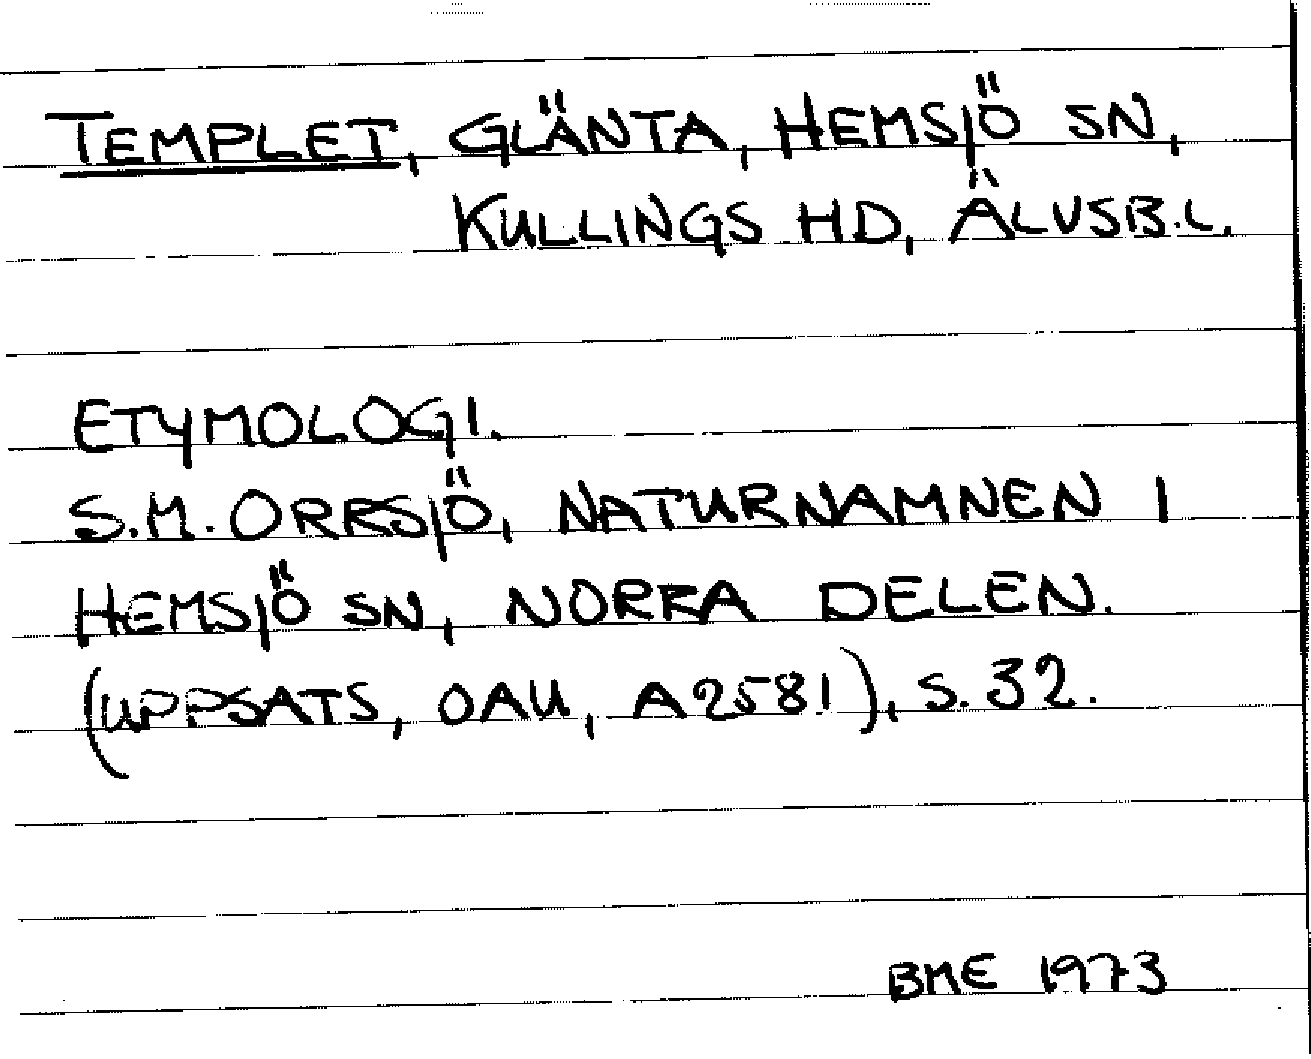 TEMPLET, GLÄNTA, HEMSJÖ SN,
KULLINGS HD, ÄLVSB.L.
ETYMOLOGI.
S.M. ORRSJÖ, NATURNAMNEN I
HEMSJÖ SN, NORRA DELEN.
(UPPSATS, OAU, A2581), S. 32.
BME 1973